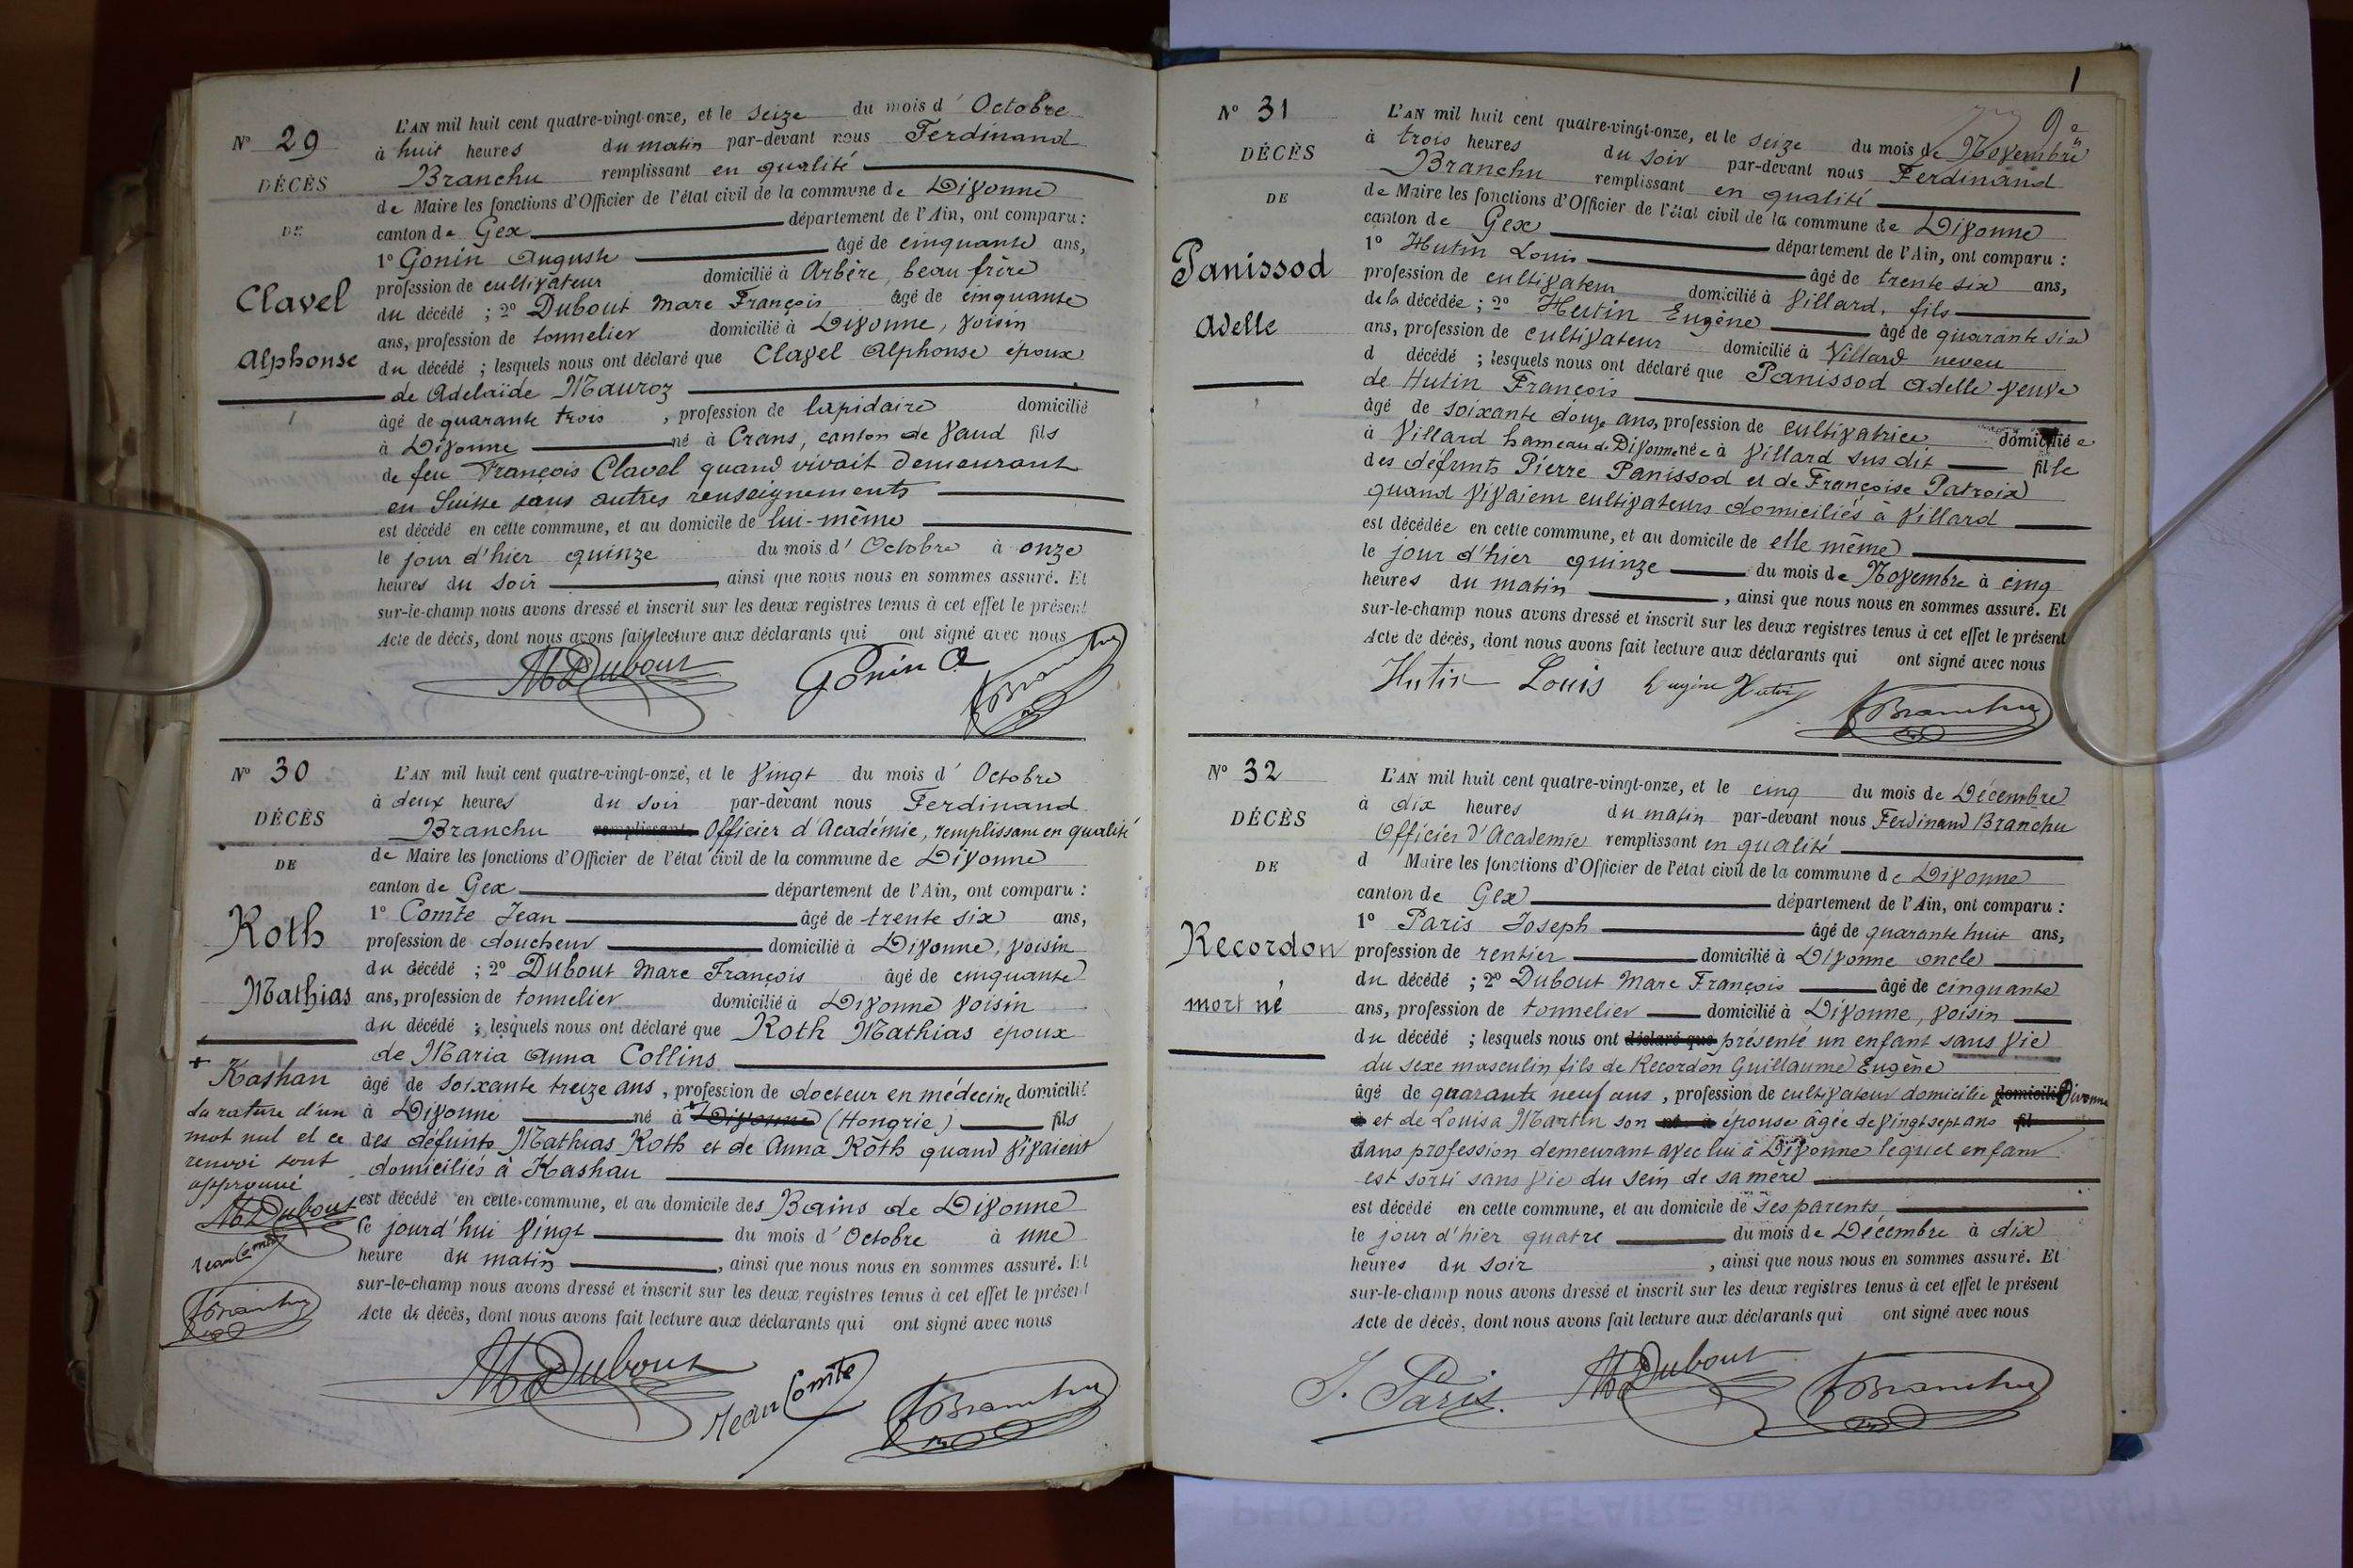 N° 29
DÉCÈS
DE
Clavel
Alphonse
L'AN mil huit cent quatre-vingt-onze, et le seize du mois d' Octobre
à huit heures du matin par-devant nous Ferdinand
Branchu remplissant en qualité
de Maire les fonctions d'Officier de l'état civil de la commune de Divonne
canton de Gex département de l'Ain, ont comparu :
1° Gonin Auguste âgé de cinquante ans,
profession de cultivateur domicilié à Arbère, beau frère
du décédé ; 2° Dubout Marc François âgé de cinquante
ans, profession de tonnelier domicilié à Divonne, voisin
du décédé ; lesquels nous ont déclaré que Clavel Alphonse epoux
de Adelaïde Mauroz
âgé de quarante trois , profession de lapidaire domicilié
à Divonne né à Crans, canton de Vaud fils
de feu François Clavel quand vivait demeurant
en Suisse sans autres renseignements
est décédé en cette commune, et au domicile de lui-même
le jour d'hier quinze du mois d' Octobre à onze
heures du soir ainsi que nous nous en sommes assuré. Et
sur-le-champ nous avons dressé et inscrit sur les deux registres tenus à cet effet le présent
Acte de décès, dont nous avons fait lecture aux déclarants qui ont signé avec nous
MDubout Gonin A FBranchu
N° 30
DÉCÈS
DE
Roth
Mathias
+ Kashan
La rature d'un
mot nul et ce
renvoi sont
approuvé
MDubout
Jean Comte
FBranchu
L'AN mil huit cent quatre-vingt-onze, et le vingt du mois d' Octobre
à deux heures du soir par-devant nous Ferdinand
Branchu remplissant Officier d'Académie, remplissant en qualité
de Maire les fonctions d'Officier de l'état civil de la commune de Divonne
canton de Gex département de l'Ain, ont comparu :
1° Comte Jean âgé de trente six ans,
profession de doucheur domicilié à Divonne, voisin
du décédé ; 2° Dubout Marc François âgé de cinquante
ans, profession de tonnelier domicilié à Divonne voisin
du décédé ; lesquels nous ont déclaré que Roth Mathias epoux
de Maria Anna Collins
âgé de soixante treize ans , profession de docteur en médecine domicilié
à Divonne né à + Divonne (Hongrie) fils
des défunts Mathias Roth et de Anna Röth quand vivaient
domiciliés à Kashau
est décédé en cette commune, et au domicile des Bains de Divonne
le jourd'hui vingt du mois d' Octobre à une
heure du matin , ainsi que nous nous en sommes assuré. Et
sur-le-champ nous avons dressé et inscrit sur les deux registres tenus à cet effet le présent
Acte de décès, dont nous avons fait lecture aux déclarants qui ont signé avec nous
MDubout Jean Comte FBranchu
1
9e
N° 31
DÉCÈS
DE
Panissod
Adelle
L'AN mil huit cent quatre-vingt-onze, et le seize du mois de Novembre
à trois heures du soir par-devant nous Ferdinand
Branchu remplissant en qualité
de Maire les fonctions d'Officier de l'état civil de la commune de Divonne
canton de Gex département de l'Ain, ont comparu :
1° Hutin Louis âgé de trente six ans,
profession de cultivateur domicilié à Villard, fils
de la décédée ; 2° Hutin Eugène âgé de quarante six
ans, profession de cultivateur domicilié à Villard neveu
d décédé ; lesquels nous ont déclaré que Panissod Adelle veuve
de Hutin François
âgé de soixante douze ans, profession de cultivatrice domicilié e
à Villard hameau de Divonne né e à Villard sus dit fille
des défunts Pierre Panissod et de Françoise Patroix
quand vivaient cultivateurs domiciliés à Villard
est décédée en cette commune, et au domicile de elle même
le jour d'hier quinze du mois de Novembre à cinq
heures du matin , ainsi que nous nous en sommes assuré. Et
sur-le-champ nous avons dressé et inscrit sur les deux registres tenus à cet effet le présent
Acte de décès, dont nous avons fait lecture aux déclarants qui ont signé avec nous
Hutin Louis Eugène Hutin FBranchu
N° 32
DÉCÈS
DE
Recordon
mort né
L'AN mil huit cent quatre-vingt-onze, et le cinq du mois de Décembre
à dix heures du matin par-devant nous Ferdinand Branchu
Officier d'Academie remplissant en qualité
d Maire les fonctions d'Officier de l'état civil de la commune de Divonne
canton de Gex département de l'Ain, ont comparu :
1° Paris Joseph âgé de quarante huit ans,
profession de rentier domicilié à Divonne oncle
du décédé ; 2° Dubout Marc François âgé de cinquante
ans, profession de tonnelier domicilié à Divonne, voisin
du décédé ; lesquels nous ont déclaré que présenté un enfant sans vie
du sexe masculin fils de Recordon Guillaume Eugène
âgé de quarante neuf ans , profession de cultivateur domicilié domicilié Divonne
à et de Louisa Martin son né à épouse âgée de vingt sept ans fil
sans profession demeurant avec lui à Divonne lequel enfant
est sorti sans vie du sein de sa mère
est décédé en cette commune, et au domicile de ses parents
le jour d'hier quatre du mois de Décembre à dix
heures du soir , ainsi que nous nous en sommes assuré. Et
sur-le-champ nous avons dressé et inscrit sur les deux registres tenus à cet effet le présent
Acte de décès, dont nous avons fait lecture aux déclarants qui ont signé avec nous
J. Paris. MDubout FBranchu